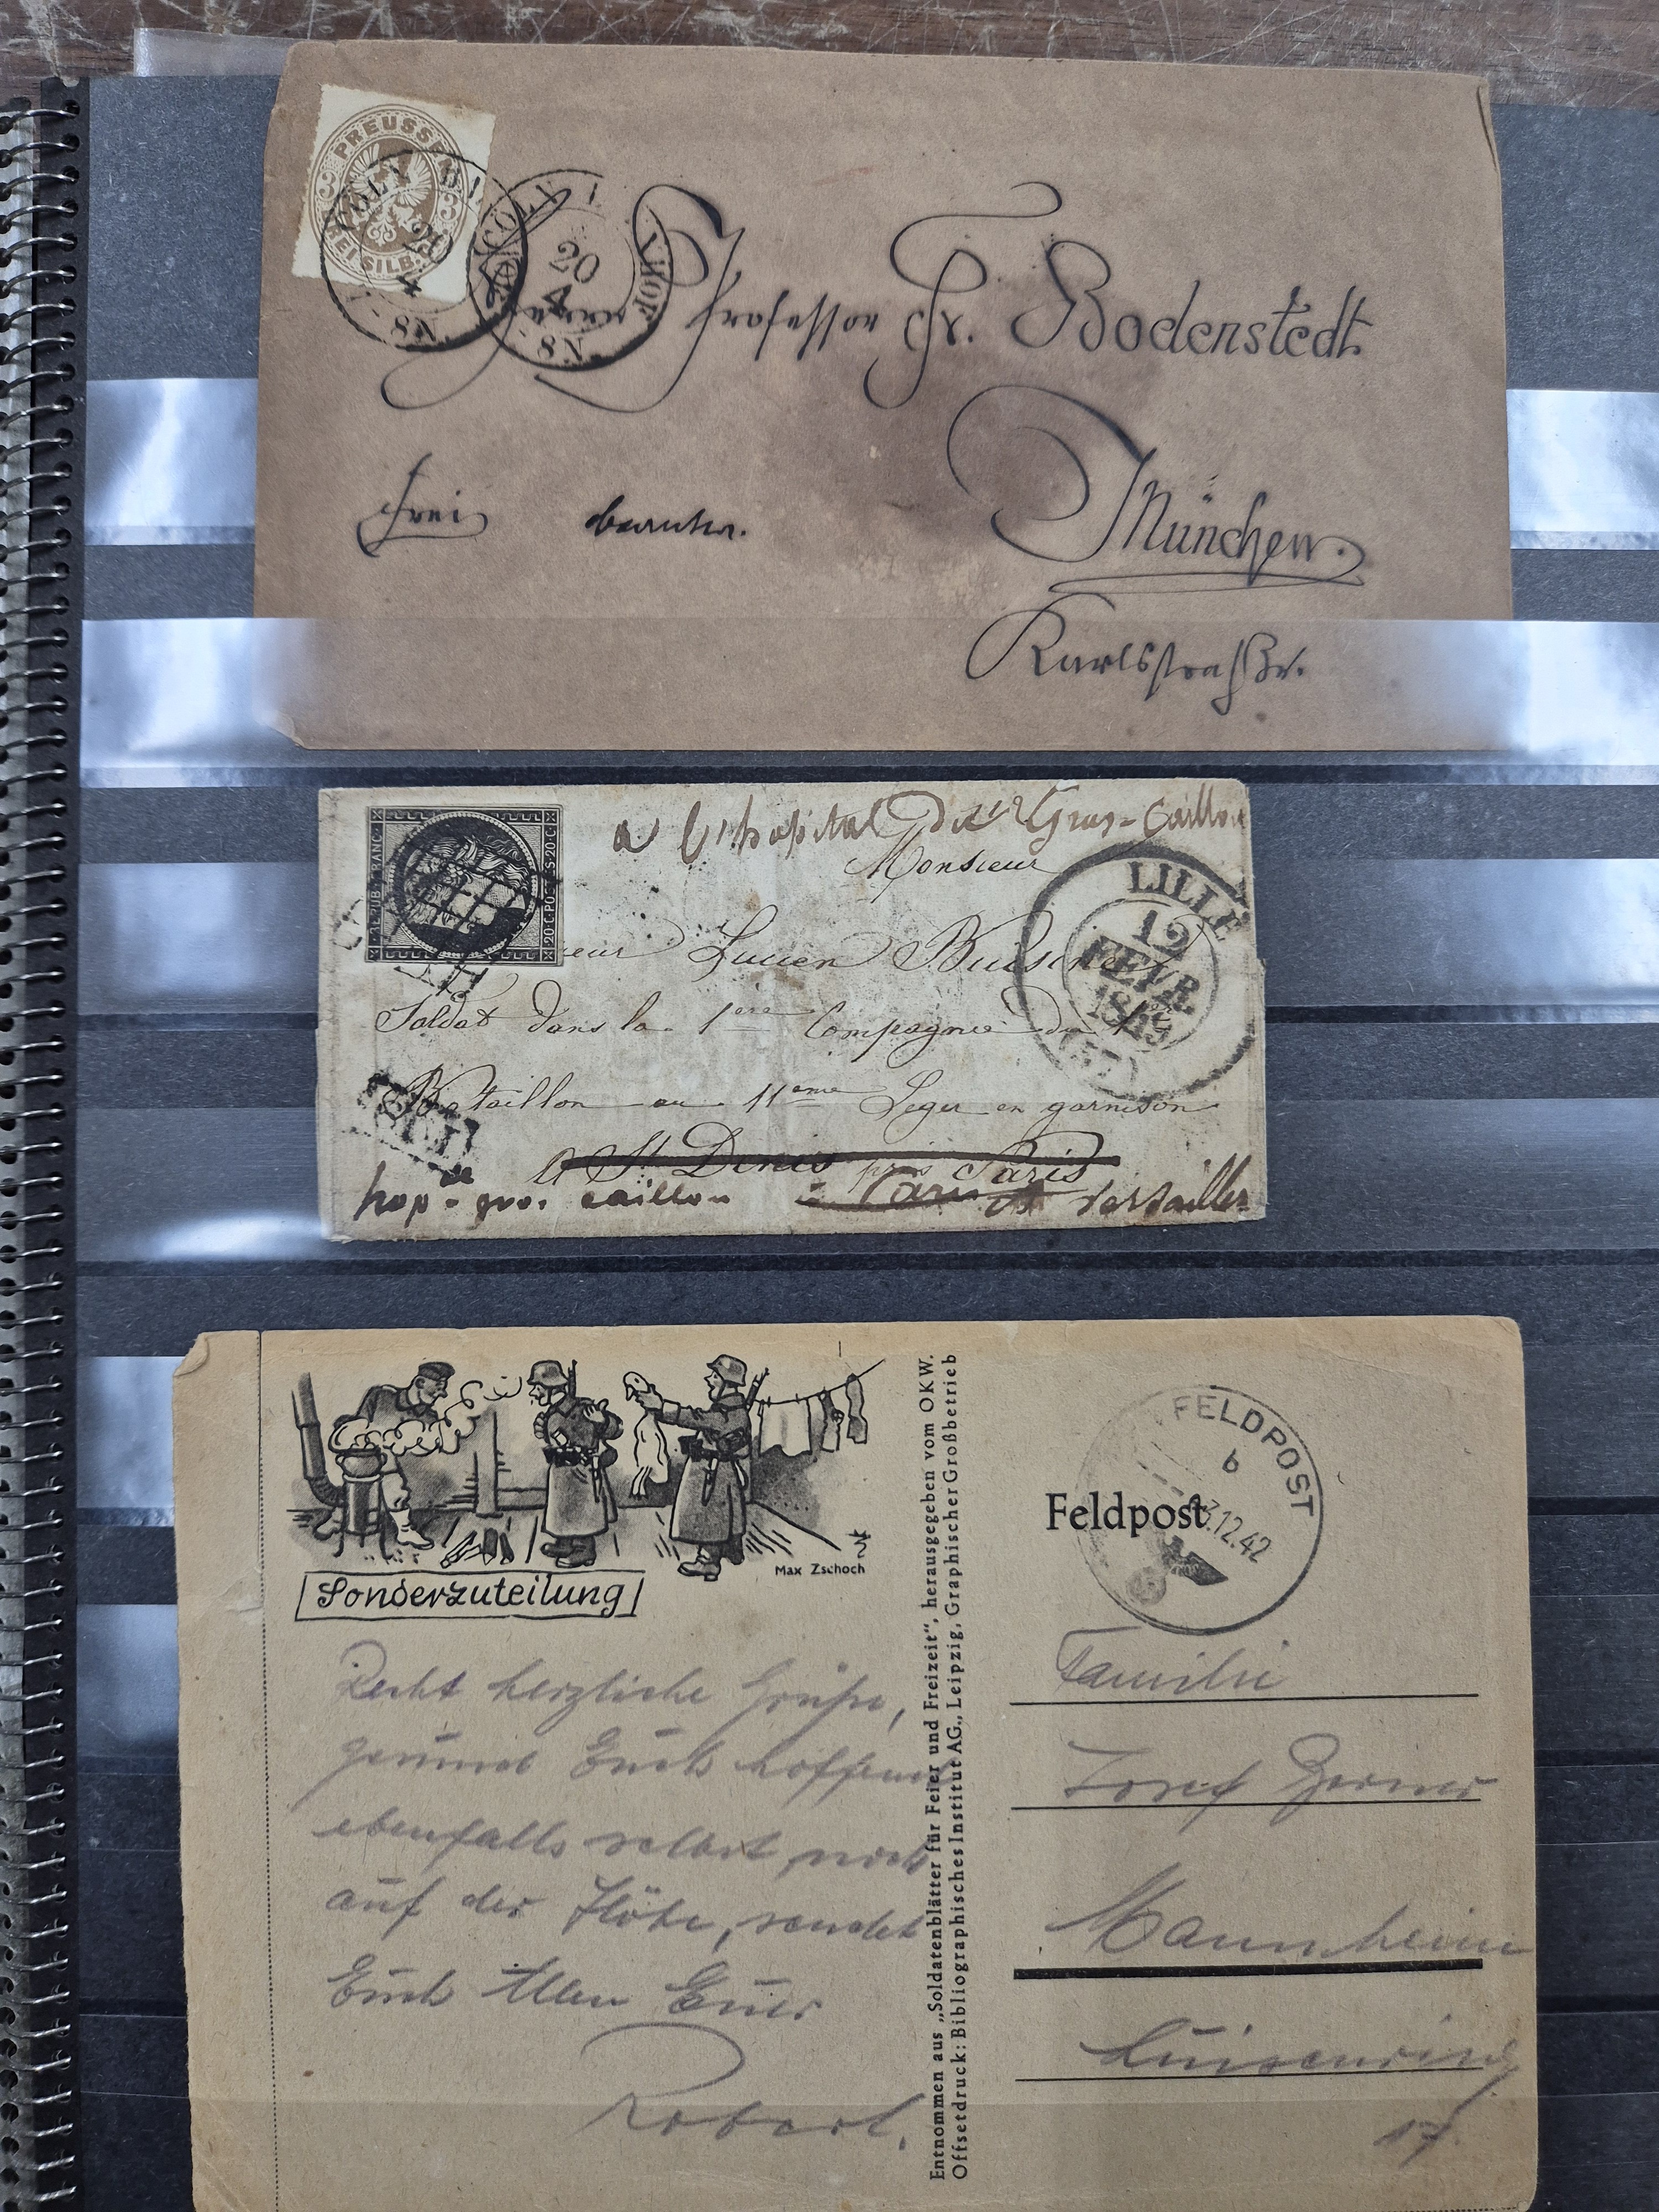 PREUSSEN
3 3
DREI SILB. GR.
CÖLN
20
4
8N.
CÖLN
BAHNHOF
20
4
8N.
Herrn Professor Fr. Bodenstedt.
München.
frei
Karlsstraße.
a l'hopital du Gros-Caillou
Monsieur
20 C. POSTES 20 C.
LILLE
19
FEVR
(57)
eur Lucien Buisine
Soldat dans la 1ere Compagnie du
Bataillon au 11eme Leger en garnison
a St Denis près Paris
hop. gros caillou à Paris Versailles
Max Zschoch
Sonderzuteilung
Recht herzliche Grüße,
gesund Euch hoffend
ebenfalls selbst noch
auf der Höhe, sendet
Euch Allen Euer
Robert.
Entnommen aus „Soldatenblätter für Feier und Freizeit“, herausgegeben vom OKW.
Offsetdruck: Bibliographisches Institut AG., Leipzig, Graphischer Großbetrieb
FELDPOST
b
3.12.42
Feldpost
Familie
Josef
Mannheim
Luisenring
17.